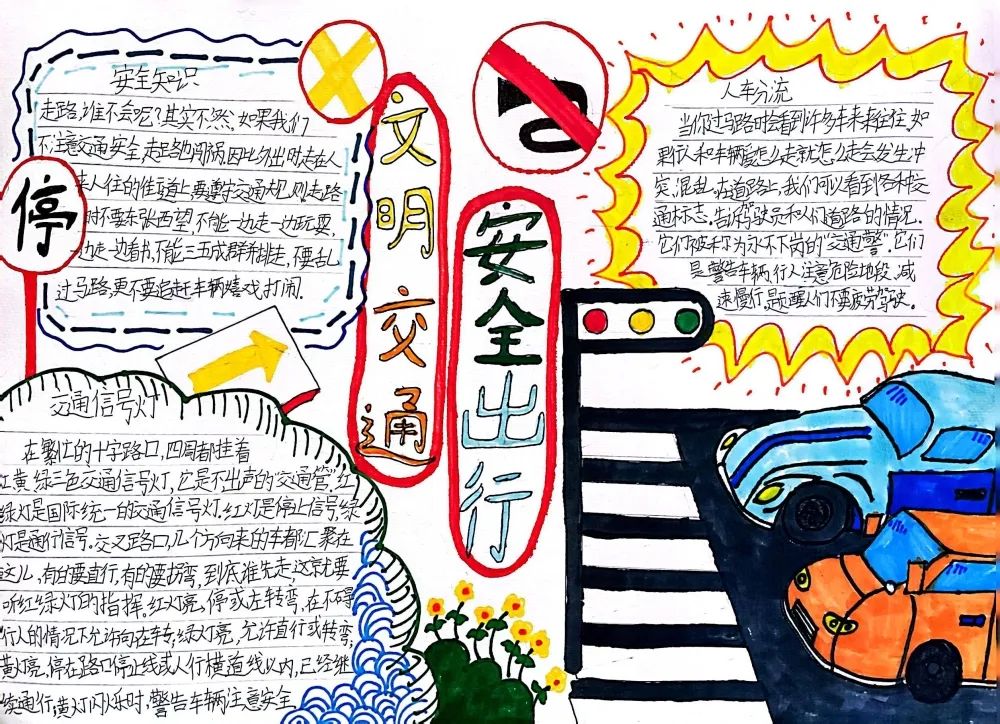 文明交通
安全出行
停
安全知识
走路,谁不会呢?其实不然,如果我们
不注意交通安全,走路也闯祸,因此外出时走在人
走人住的住道上,要遵守交通大规则走路
时不要东张西望,不能一边走一边玩耍,
边走一边看书,不能三五成群并排走,不要乱
过马路,更不要追赶车辆嬉戏,打闹.
人车分流
当你过马路时会看到许多车来来往往,如
果行人和车辆爱怎么走就怎么走会发生冲
突,混乱,在道路上,我们可以看到各种交
通标志,告诉驾驶员和人们道路的情况.
它们被称为永不下岗的“交通警”.它们
是警告车辆,行人注意危险地段,减
速慢行,提醒人们不要疲劳驾驶。
交通信号灯
在繁忙的十字路口,四周都挂着
红黄绿三色交通信号灯,它是不出声的“交通管”.红
绿灯是国际统一的交通信号灯.红灯是停止信号,绿
灯是通行信号.交叉路口,几个方向来的车都汇聚在
这儿,有的要直行,有的要拐弯,到底谁先走,这就要
听红绿灯的指挥.红灯亮,停或左转弯,在不碍
行人的情况下允许向左转;绿灯亮,允许直行或转弯;
黄灯亮,停在路口停止线或人行横道线以内,已经继
续通行,黄灯闪烁时,警告车辆注意安全